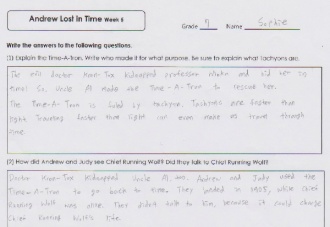 Andrew Lost in Time Week 8
Grade Name Sophie
Write the answers to the following questions.
(1) Explain the Time-A-Tron. Write who made it for what purpose. Be sure to explain what tachyons are.
The evil doctor Kron-Tox kidnapped professor and hid her in
time. So, Uncle Al made the Time-A-Tron to rescue her.
The Time-A-Tron is fuled by tachyon. Tachyons are faster than
light. Traveling faster than light can even make us travel through
time.
(2) How did Andrew and Judy see Chief Running Wolf? Did they talk to Chief Running Wolf?
Doctor Kron-Tox kidnapped Uncle Al, too. Andrew and Judy used the
Time-A-Tron to go back to time. They landed in while Chief
Running Wolf was alive. They didn't talk to him, because it could change
Chief Running Wolf's life.